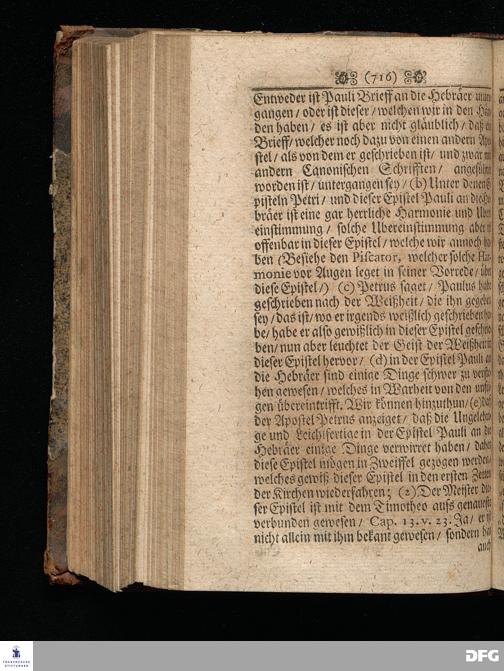 (716)
Entweder ist Pauli Brieff an die Hebräer
gangen / oder ist dieser / welchen wir in den
den haben / es ist aber nicht gläublich / daß
Brieff / welcher noch dazu von einen andern
stel / als von dem er geschrieben ist / und zwar
andern Canonischen Schrifften /
worden ist / untergangen sey / (b) Unter denen
pisteln Petri / und dieser Epistel Pauli an die
bräer ist eine gar herrliche Harmonie und
einstimmung / solche Ubereinstimmung aber
offenbar in dieser Epistel / welche wir annoch
ben (Besiehe den Piscator, welcher solche
monie vor Augen leget in seiner Vorrede /
diese Epistel /) (c) Petrus saget / Paulus
geschrieben nach der Weißheit / die ihn
sey / das ist / wo er irgends weißlich geschrieben
be / habe er also gewißlich in dieser Epistel
ben / nun aber leuchtet der Geist der Weißheit
dieser Epistel hervor / (d) in der Epistel Pauli
die Hebräer sind einige Dinge schwer zu
hen gewesen / welches in Warheit von den
gen übereintrifft. Wir können hinzuthun / (e)
der Apostel Petrus anzeiget / daß die
ge und Leichtfertige in der Epistel Pauli an
Hebräer einige Dinge verwirret haben /
diese Epistel mögen in Zweiffel gezogen werden
welches gewiß dieser Epistel in den ersten
der Kirchen wiederfahren; (2) Der Meister
ser Epistel ist mit dem Timotheo aufs
verbunden gewesen / Cap. 13. v. 23. Ja /
nicht allein mit ihm bekant gewesen / sondern
auch
FRANCKESCHE STIFTUNGEN
DFG